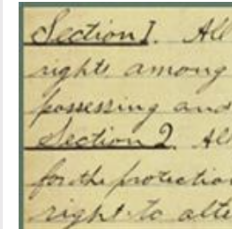 Section 1. All
rights among
possessing and
Section 2. All
for the protection
right to alte